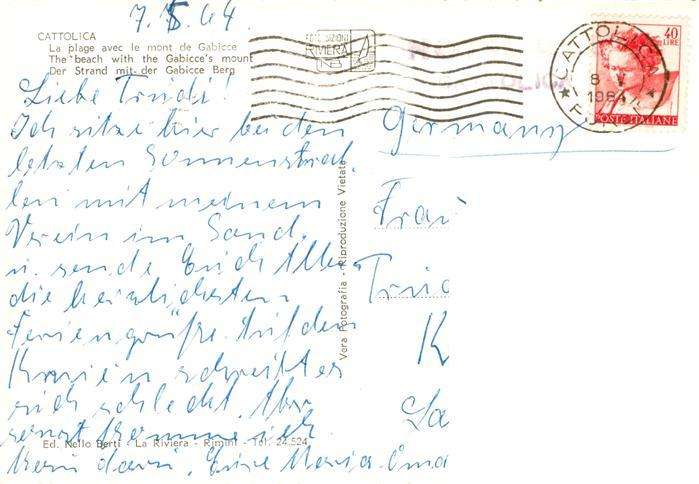 7.5.64.
CATTOLICA
La plage avec le mont de Gabicce
The beach with the Gabicce's mount
Der Strand mit der Gabicce Berg
Liebe Trudi!
Ich sitze hier bei den
letzten Sonnenstrah-
len mit meinem
Verein im Sand.
u. sende Euch Allen
die herzlichsten
Feriengrüße. Auf den
Knien schreibt es
sich schlecht. Aber
sonst komme ich
kein dazu. Eure Maria-Oma
Ed. Nello Berti - La Riviera - Rimini - Tel. 24.524
Vera Fotografia - Riproduzione Vietata
RIVIERA
40
LIRE
POSTE ITALIANE
CATTOLICA
8 V
196
Germany
Frau
Trud
K
La